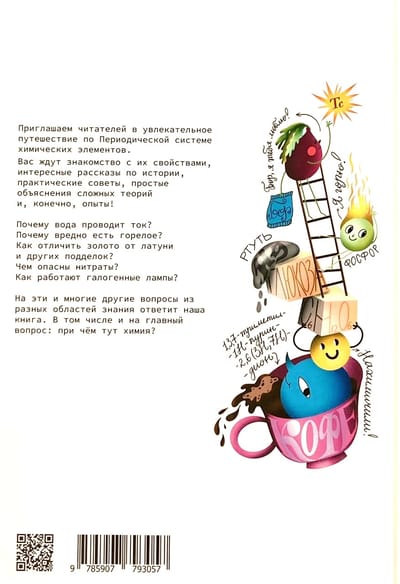 Приглашаем читателей в увлекательное
путешествие по Периодической системе
химических элементов.
Вас ждут знакомство с их свойствами,
интересные рассказы по истории,
практические советы, простые
объяснения сложных теорий
и, конечно, опыты!
Почему вода проводит ток?
Почему вредно есть горелое?
Как отличить золото от латуни
и других подделок?
Чем опасны нитраты?
Как работают галогенные лампы?
На эти и многие другие вопросы из
разных областей знания ответит наша
книга. В том числе и на главный
вопрос: при чём тут химия?
Tc
Бор, я тебя люблю!
Я горю!
ФОСФОР
РТУТЬ
1,3,7-триметил-
-1H-пурин-
-2,6(3H,7H)-
-дион
Нахимичили!
КОФЕ
9 785907 793057